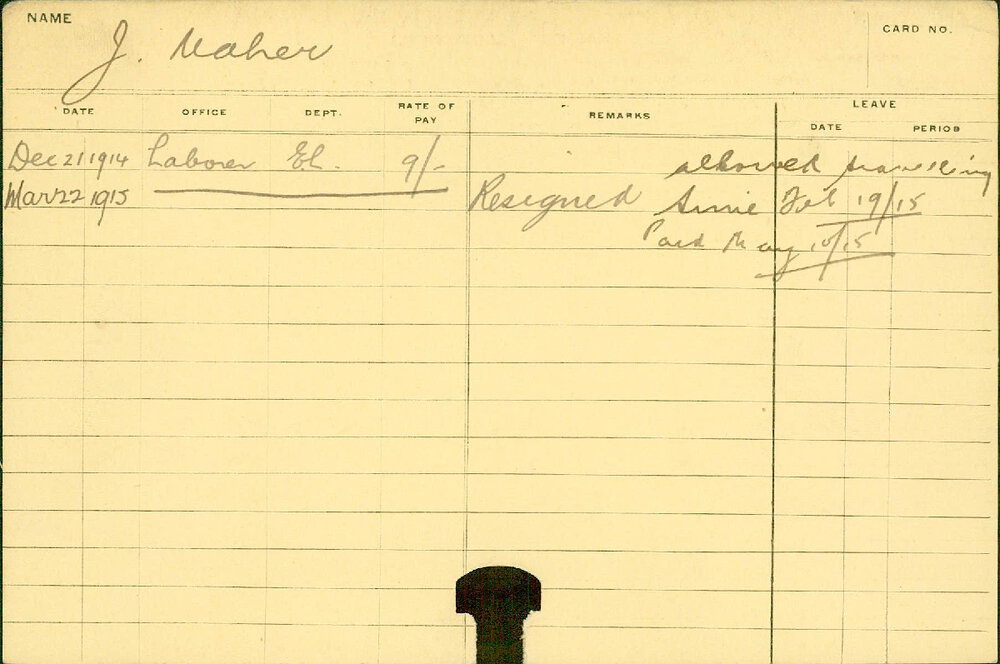 NAME
J. Maher
CARD NO.
DATE OFFICE DEPT. RATE OF PAY REMARKS LEAVE
DATE PERIOD
Dec 21 1914 Laborer El. 9/- allowed travelling
Mar 22 1915 Resigned time Feb 19/15
Paid May 10/15